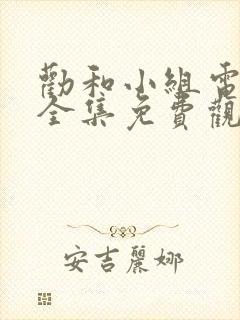 勸和小組電
全集免費觀
安吉麗娜